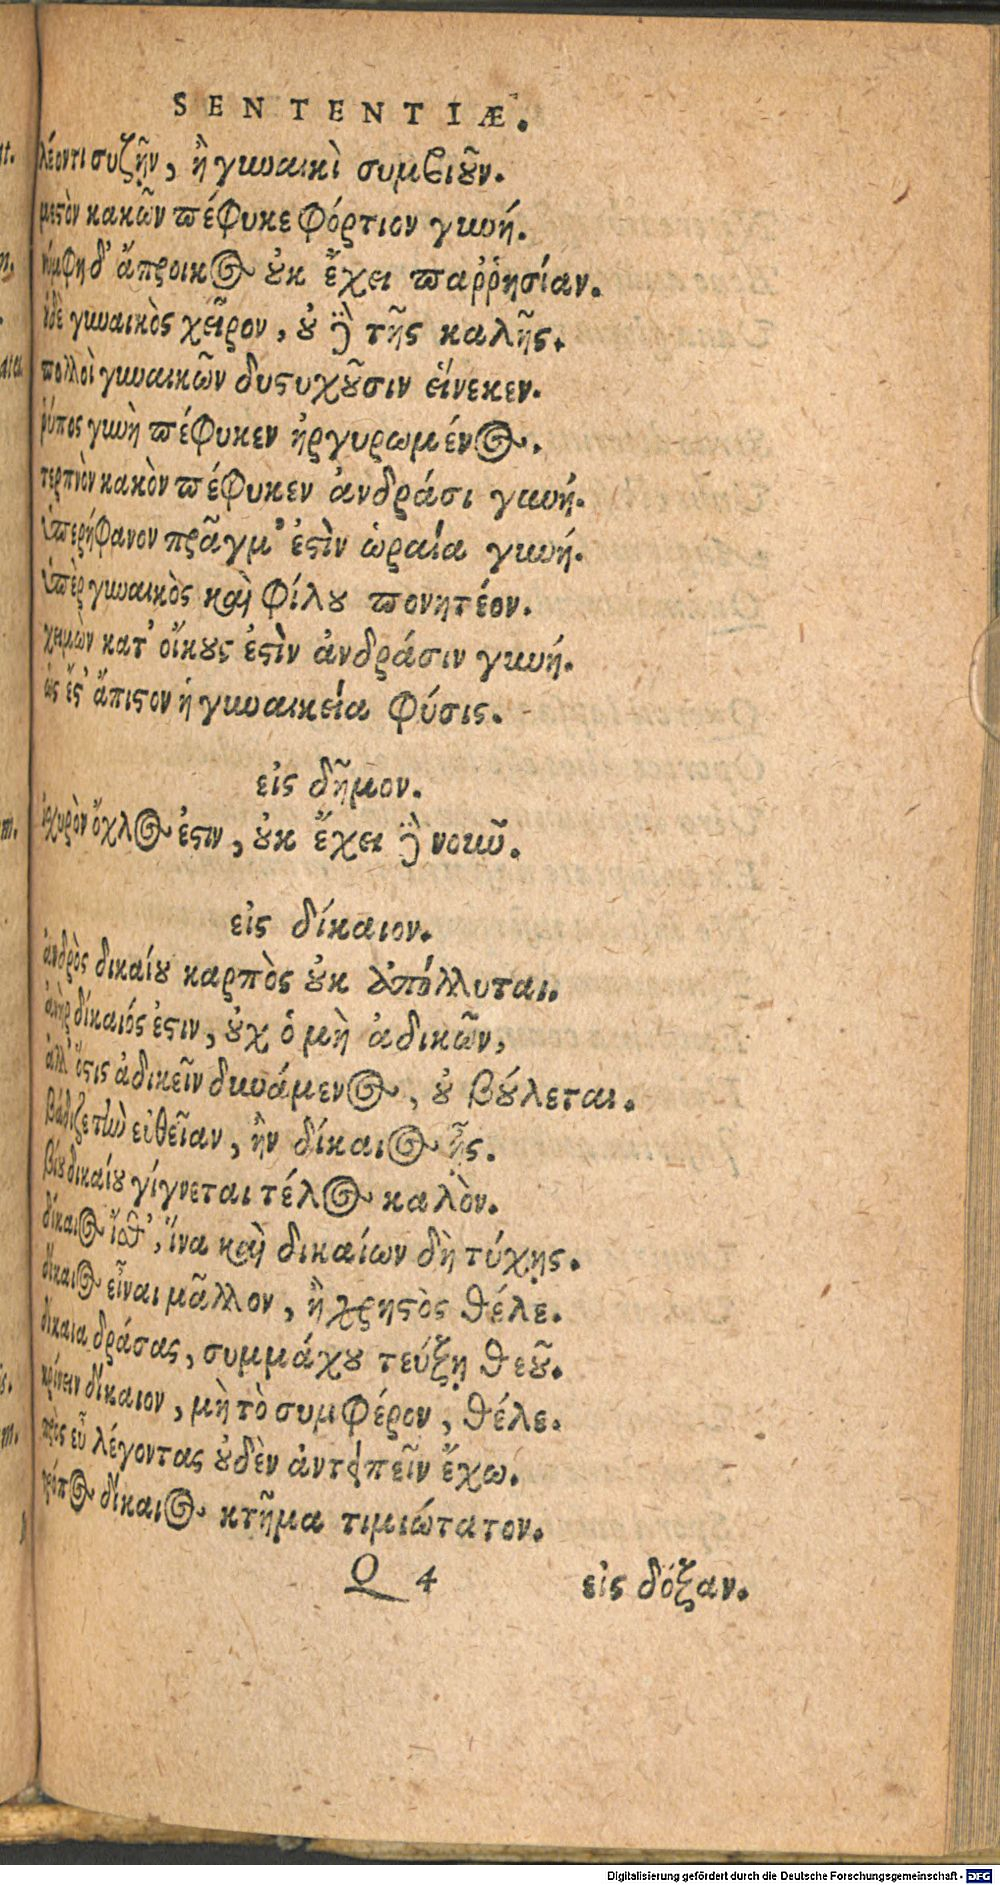 SENTENTIÆ.
λέοντι συζῆν, ἢ γυναικὶ συμβιοῦν.
μεστὸν κακῶν πέφυκε φόρτιον γυνή.
νύμφη δ' ἄπροικος οὐκ ἔχει παῤῥησίαν.
οὐδὲ γυναικὸς χεῖρον, οὐδὲ τῆς καλῆς.
πολλοὶ γυναικῶν δυστυχοῦσιν εἵνεκεν.
ῥύπος γυνὴ πέφυκεν ἠργυρωμένος.
τερπνὸν κακὸν πέφυκεν ἀνδράσι γυνή.
ὑπερήφανον πρᾶγμ' ἐστὶν ὡραία γυνή.
ὑπὲρ γυναικὸς καὶ φίλου πονητέον.
χειμὼν κατ' οἴκους ἐστὶν ἀνδράσιν γυνή.
ὡς ἔστ' ἄπιστον ἡ γυναικεία φύσις.
εἰς δῆμον.
ἰσχυρὸν ὄχλος ἐστιν, οὐκ ἔχει δὲ νοιιῦ.
εἰς δίκαιον.
ἀνδρὸς δικαίου καρπὸς οὐκ ἀπόλλυται.
ἀνὴρ δίκαιός ἐστιν, οὐχ ὁ μὴ ἀδικῶν,
ἀλλ' ὅστις ἀδικεῖν δυνάμενος, οὐ βούλεται.
βάδιζε τὴν εὐθεῖαν, ἢν δίκαιος ᾖς.
βίου δικαίου γίγνεται τέλος καλὸν.
δίκαιος ἴσθ', ἵνα καὶ δικαίων δὴ τύχῃς.
δίκαιος εἶναι μᾶλλον, ἢ χρηστὸς θέλε.
δίκαια δράσας, συμμάχου τεύξῃ θεοῦ.
κρίνειν δίκαιον, μὴ τὸ συμφέρον, θέλε.
πρὸς εὖ λέγοντας οὐδὲν ἀντειπεῖν ἔχω.
τρόπος δίκαιος κτῆμα τιμιώτατον.
Q 4 εἰς δόξαν.
Digitalisierung gefördert durch die Deutsche Forschungsgemeinschaft - DFG